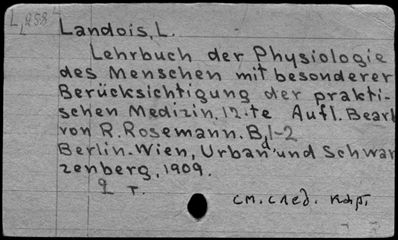 L 258
Landois, L.
Lehrbuch der Physiologie
des Menschen mit besonderer
Berücksichtigung der prakti-
schen Medizin. 12-te Aufl. Bearb
von R. Rosemann. Bd 1-2
Berlin-Wien, Urban und Schwar
zenberg, 1909.
2 т.
см. след. кар.